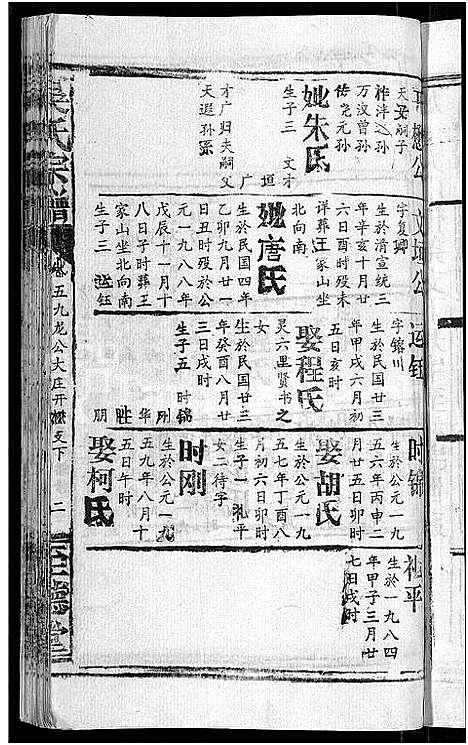 天艾嗣子
柞泮之孙
万汶曾孙
佑尧元孙
妣朱氏
生子三 文才
垣 广
才广归夫嗣父
天遐孙
文垣公
字复卿
生於清宣统三
年辛亥十月廿
六日酉时殁未
详葬王家山坐
北向南
妣唐氏
生於民国四年
乙卯九月廿一
日丑时殁於公
元一九八八年
戊辰十一月十
八日子时葬王
家山坐北向南
生子三 运钰
运钰
字镕川
生於民国廿三
年甲戌六月初
五日亥时
娶程氏
灵六里贤书之
女
生於民国廿三
年癸酉八月廿
三日戌时
生子五 时锦
刚 华
胜 朋
时锦
生於公元一九
五六年丙申二
月廿五日卯时
娶胡氏
生於公元一九
五七年丁酉八
月初六日卯时
生子一 礼平
女二待字
时刚
生於公元一九
五九年八月十
五日午时
娶柯氏
礼平
生於一九八四
年甲子三月廿
七日戌时
吴氏宗谱
卷五九龙公大庄开懋支下
二
至德堂